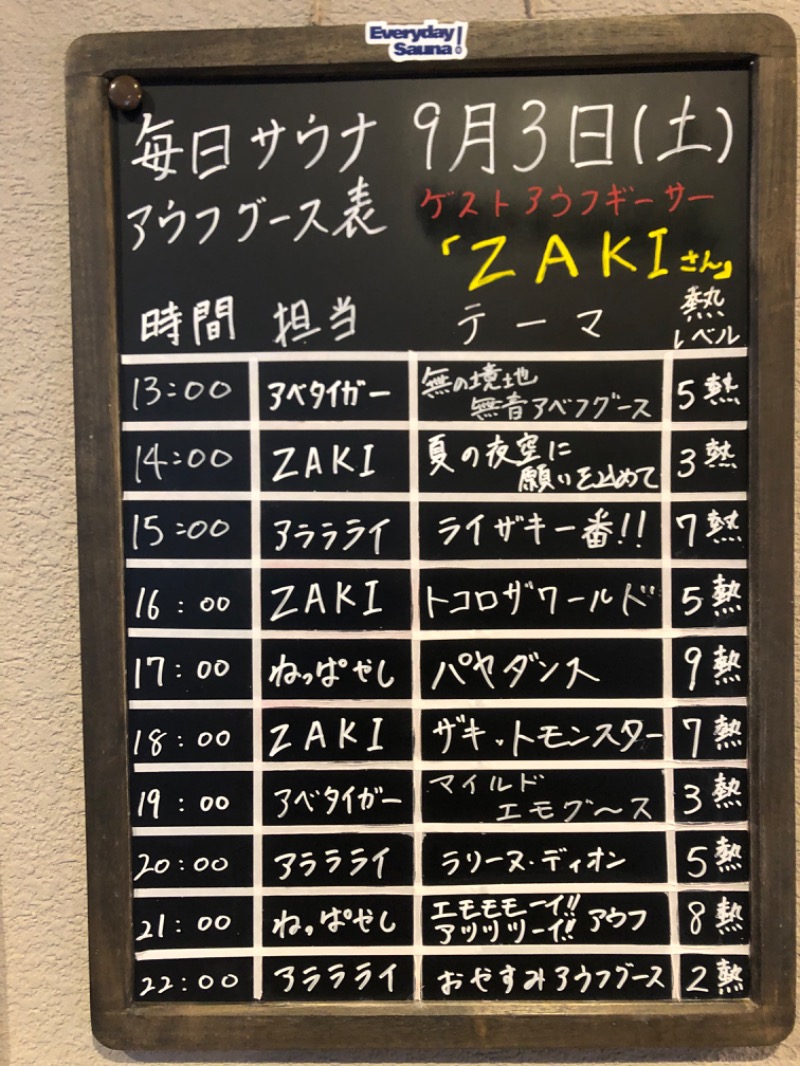 Everyday
Sauna!
毎日サウナ 9月3日(土)
アウフグース表 ゲストアウフギーサー
「ZAKIさん」
時間 担当 テーマ 熱レベル
13:00 アベタイガー 無の境地 5熱
無音アベフグース
14:00 ZAKI 夏の夜空に 3熱
願いを込めて
15:00 アラララライ ライザキ一番!! 7熱
16:00 ZAKI トコロザワールド 5熱
17:00 ねっぱやし パヤダンス 9熱
18:00 ZAKI ザキットモンスター 7熱
19:00 アベタイガー マイルド 3熱
エモグ〜ス
20:00 アララライ ラリーヌ・ディオン 5熱
21:00 ねっぱやし エモモモーイ!! アウフ 8熱
アツツツーイ!!
22:00 アララライ おやすみアウフグース 2熱